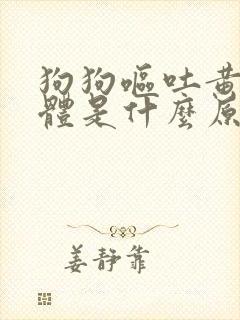 狗狗嘔吐黃
體是什麼原
姜靜靠